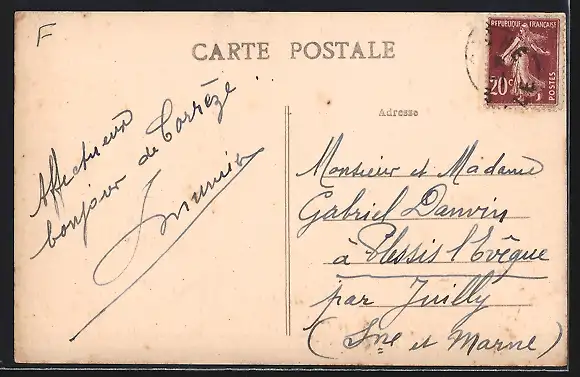 F
CARTE POSTALE
REPUBLIQUE FRANÇAISE
20c
POSTES
Adresse
Affectueux
bonjour de Corrèze
Monsieur et Madame
Gabriel Danvin
à Plessis l'Evêque
par Juilly
(Sne et Marne)